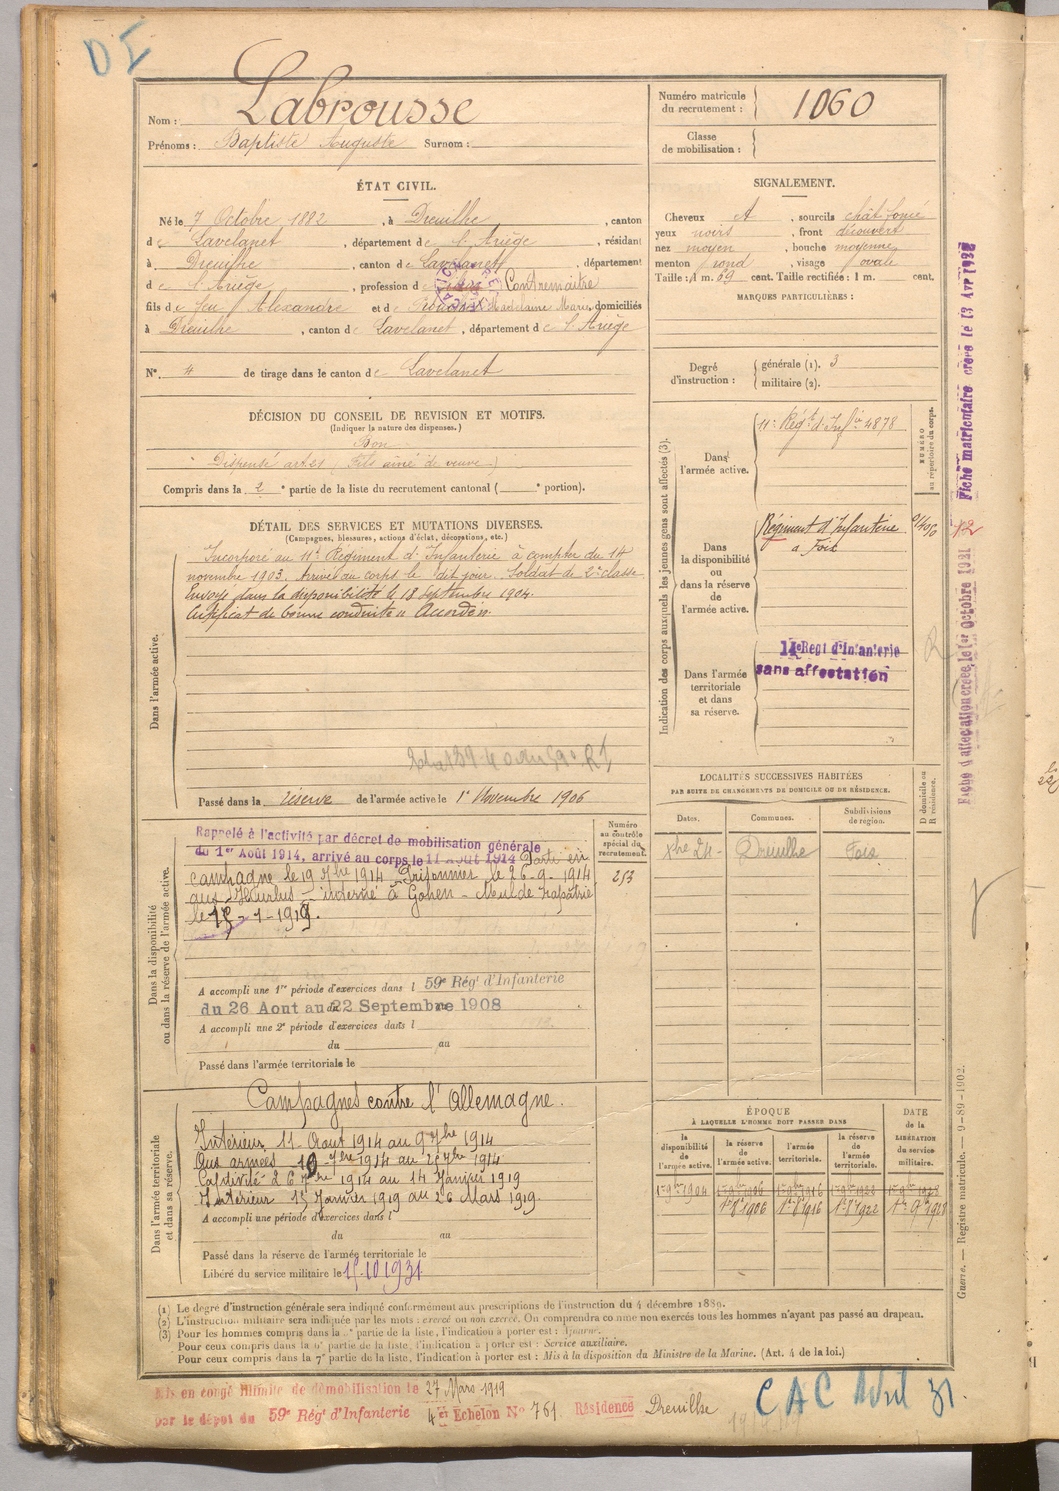 DI
Nom : Labrousse
Prénoms : Baptiste Auguste Surnom :
Numéro matricule du recrutement : 1060
Classe de mobilisation :
ÉTAT CIVIL.
Né le 7 Octobre 1882, à Dreuilhe, canton
de Lavelanet, département de l'Ariège, résidant
à Dreuilhe, canton de Lavelanet, département
de l'Ariège, profession de Contremaître
fils de feu Alexandre et de Madelaine Marie, domiciliés
à Dreuilhe, canton de Lavelanet, département de l'Ariège
N° 4 de tirage dans le canton de Lavelanet
SIGNALEMENT.
Cheveux, sourcils chât. foncé
yeux noirs, front découvert
nez moyen, bouche moyenne,
menton rond, visage ovale
Taille : 1 m. 69 cent. Taille rectifiée : 1 m. cent.
MARQUES PARTICULIÈRES :
Degré d'instruction : générale (1). 3
militaire (2).
DÉCISION DU CONSEIL DE REVISION ET MOTIFS.
(Indiquer la nature des dispenses.)
Bon
Dispensé art 21 (Fils aîné de veuve)
Compris dans la 2e partie de la liste du recrutement cantonal ( e portion).
DÉTAIL DES SERVICES ET MUTATIONS DIVERSES.
(Campagnes, blessures, actions d'éclat, décorations, etc.)
Dans l'armée active.
Incorporé au 11e Régiment d'Infanterie à compter du 14
novembre 1903. Arrivé au corps le dit jour. Soldat de 2e classe
Envoyé dans la disponibilité le 18 septembre 1904.
Certificat de bonne conduite "Accordé".
Passé dans la réserve de l'armée active le 1er Novembre 1906
Indication des corps auxquels les jeunes gens sont affectés (3).
NUMÉRO au répertoire du corps.
Dans l'armée active.
11e Régt d'Infie 4878
Dans la disponibilité ou dans la réserve de l'armée active.
Régiment d'Infanterie
à Foix
Dans l'armée territoriale et dans sa réserve.
14e Regt d'Infanterie
sans affectation
Fiche matriculaire créée le 13 Avril 1932
Fiche d'affectation créée le 1er Octobre 1921
Dans la disponibilité ou dans la réserve de l'armée active.
Numéro au contrôle spécial du recrutement.
253
Rappelé à l'activité par décret de mobilisation générale
du 1er Août 1914, arrivé au corps le 11 août 1914 Parti en
campagne le 19 7bre 1914 Prisonnier le 26-9-1914
aux Hurlus interné à Rapatrié
le 15-1-1919.
A accompli une 1re période d'exercices dans l 59e Régt d'Infanterie
du 26 Aout au 22 Septembre 1908
A accompli une 2e période d'exercices dans l
du au
Passé dans l'armée territoriale le
LOCALITÉS SUCCESSIVES HABITÉES
PAR SUITE DE CHANGEMENTS DE DOMICILE OU DE RÉSIDENCE.
Dates. Communes. Subdivisions de région. D domicile ou R résidence.
Xbre 24 Dreuilhe Foix
Dans l'armée territoriale et dans sa réserve.
Campagnes contre l'Allemagne.
Intérieur 11 Aout 1914 au 9 7bre 1914
Aux armées 10 7bre 1914 au 25 7bre 1914
Captivité 26 7bre 1914 au 14 Janvier 1919
Intérieur 15 Janvier 1919 au 26 Mars 1919.
A accompli une période d'exercices dans l
du au
Passé dans la réserve de l'armée territoriale le
Libéré du service militaire le 15.10.1931
ÉPOQUE
À LAQUELLE L'HOMME DOIT PASSER DANS
DATE de la LIBÉRATION du service militaire.
la disponibilité de l'armée active. la réserve de l'armée active. l'armée territoriale. la réserve de l'armée territoriale.
1er 9bre 1904 1er 9bre 1906 1er 9bre 1916 1er 9bre 1922 1er 9bre 1928
1er 8e 1906 1er 8e 1916 1er 8e 1922
(1) Le degré d'instruction générale sera indiqué conformément aux prescriptions de l'instruction du 4 décembre 1889.
(2) L'instruction militaire sera indiquée par les mots : exercé ou non exercé. On comprendra comme non exercés tous les hommes n'ayant pas passé au drapeau.
(3) Pour les hommes compris dans la 5e partie de la liste, l'indication à porter est : Ajourné.
Pour ceux compris dans la 6e partie de la liste, l'indication à porter est : Service auxiliaire.
Pour ceux compris dans la 7e partie de la liste, l'indication à porter est : Mis à la disposition du Ministre de la Marine. (Art. 4 de la loi.)
Guerre. — Registre matricule. — 9-89-1902.
Mis en congé illimité de démobilisation le 27 Mars 1919
par le dépôt du 59e Régt d'Infanterie 4e Echelon N° 761 Résidence Dreuilhe
CAC Avril 31.